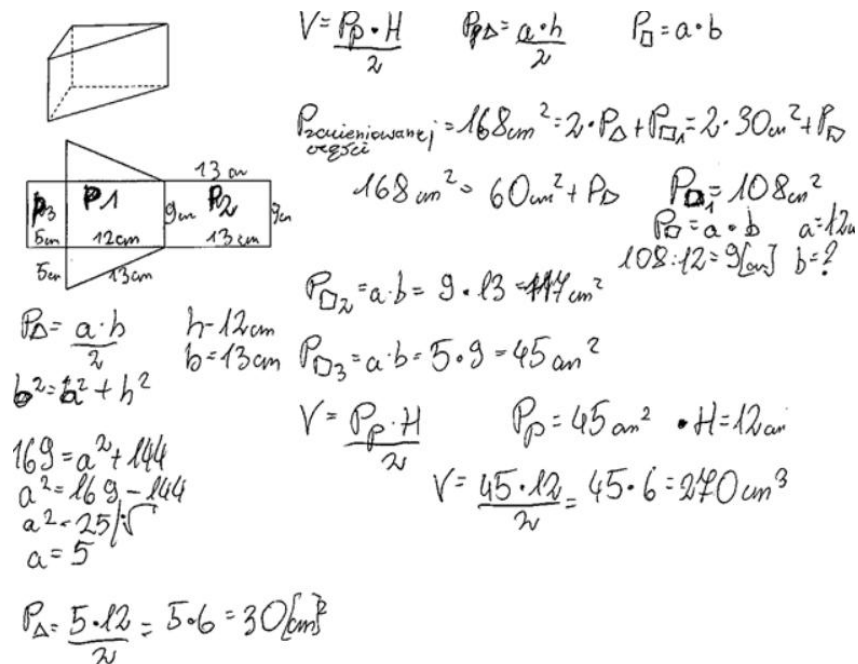 V = Pp · H / 2   P△ = a · h / 2   P□ = a · b
Pzacieniowanej części = 168 cm² = 2 · P△ + P□1 = 2 · 30 cm² + P□
168 cm² = 60 cm² + P□   P□1 = 108 cm²
P□ = a · b   a = 12
108 : 12 = 9 [cm]   b = ?
13 cm
P3 P1 9cm P2 9cm
5cm 12cm 13cm
5cm 13cm
P□2 = a · b = 9 · 13 = 117 cm²
P△ = a · h / 2   h = 12 cm
b = 13 cm
P□3 = a · b = 5 · 9 = 45 cm²
b² = a² + h²
V = Pp · H / 2   Pp = 45 cm² · H = 12 cm
169 = a² + 144
a² = 169 - 144
a² = 25 /√
a = 5
V = 45 · 12 / 2 = 45 · 6 = 270 cm³
P△ = 5 · 12 / 2 = 5 · 6 = 30 [cm]²